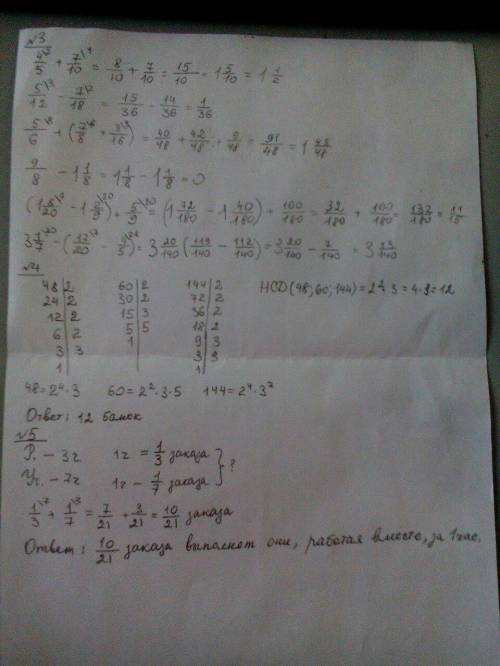 №3
4/5 + 7/10 = 8/10 + 7/10 = 15/10 = 1 5/10 = 1 1/2
5/12 - 7/18 = 15/36 - 14/36 = 1/36
5/6 + (7/8 + 3/16) = 40/48 + 42/48 + 9/48 = 91/48 = 1 43/48
9/8 - 1 1/8 = 1 1/8 - 1 1/8 = 0
= (1 72/180 - 1 40/180) + 100/180 = 32/180 + 100/180 = 132/180 = 11/15
3 1/7 - (17/20 - 4/5) = 3 20/140 (119/140 - 112/140) = 3 20/140 - 7/140 = 3 13/140
№4
48|2 60|2 144|2 НОД(48;60;144)=2²·3=4·3=12
24|2 30|2 72|2
12|2 15|3 36|2
6|2 5|5 18|2
3|3 1 9|3
1 3|3
1
48=2⁴·3 60=2²·3·5 144=2⁴·3²
Ответ: 12 банок
№5
Р. - 3ч 1ч = 1/3 заказа
Уч. - 7ч 1ч - 1/7 заказа } ?
1/3 + 1/7 = 7/21 + 3/21 = 10/21 заказа
Ответ: 10/21 заказа выполнят они, работая вместе, за 1 час.